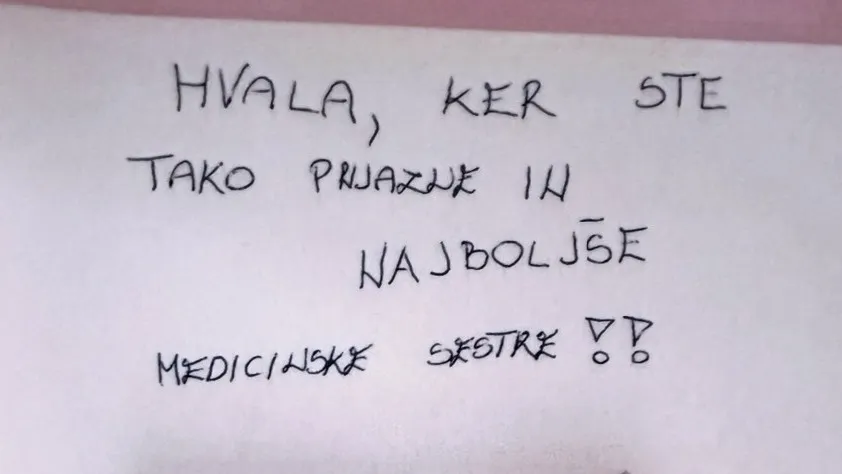 HVALA, KER STE
TAKO PRIJAZNE IN
NAJBOLJŠE
MEDICINSKE SESTRE !!